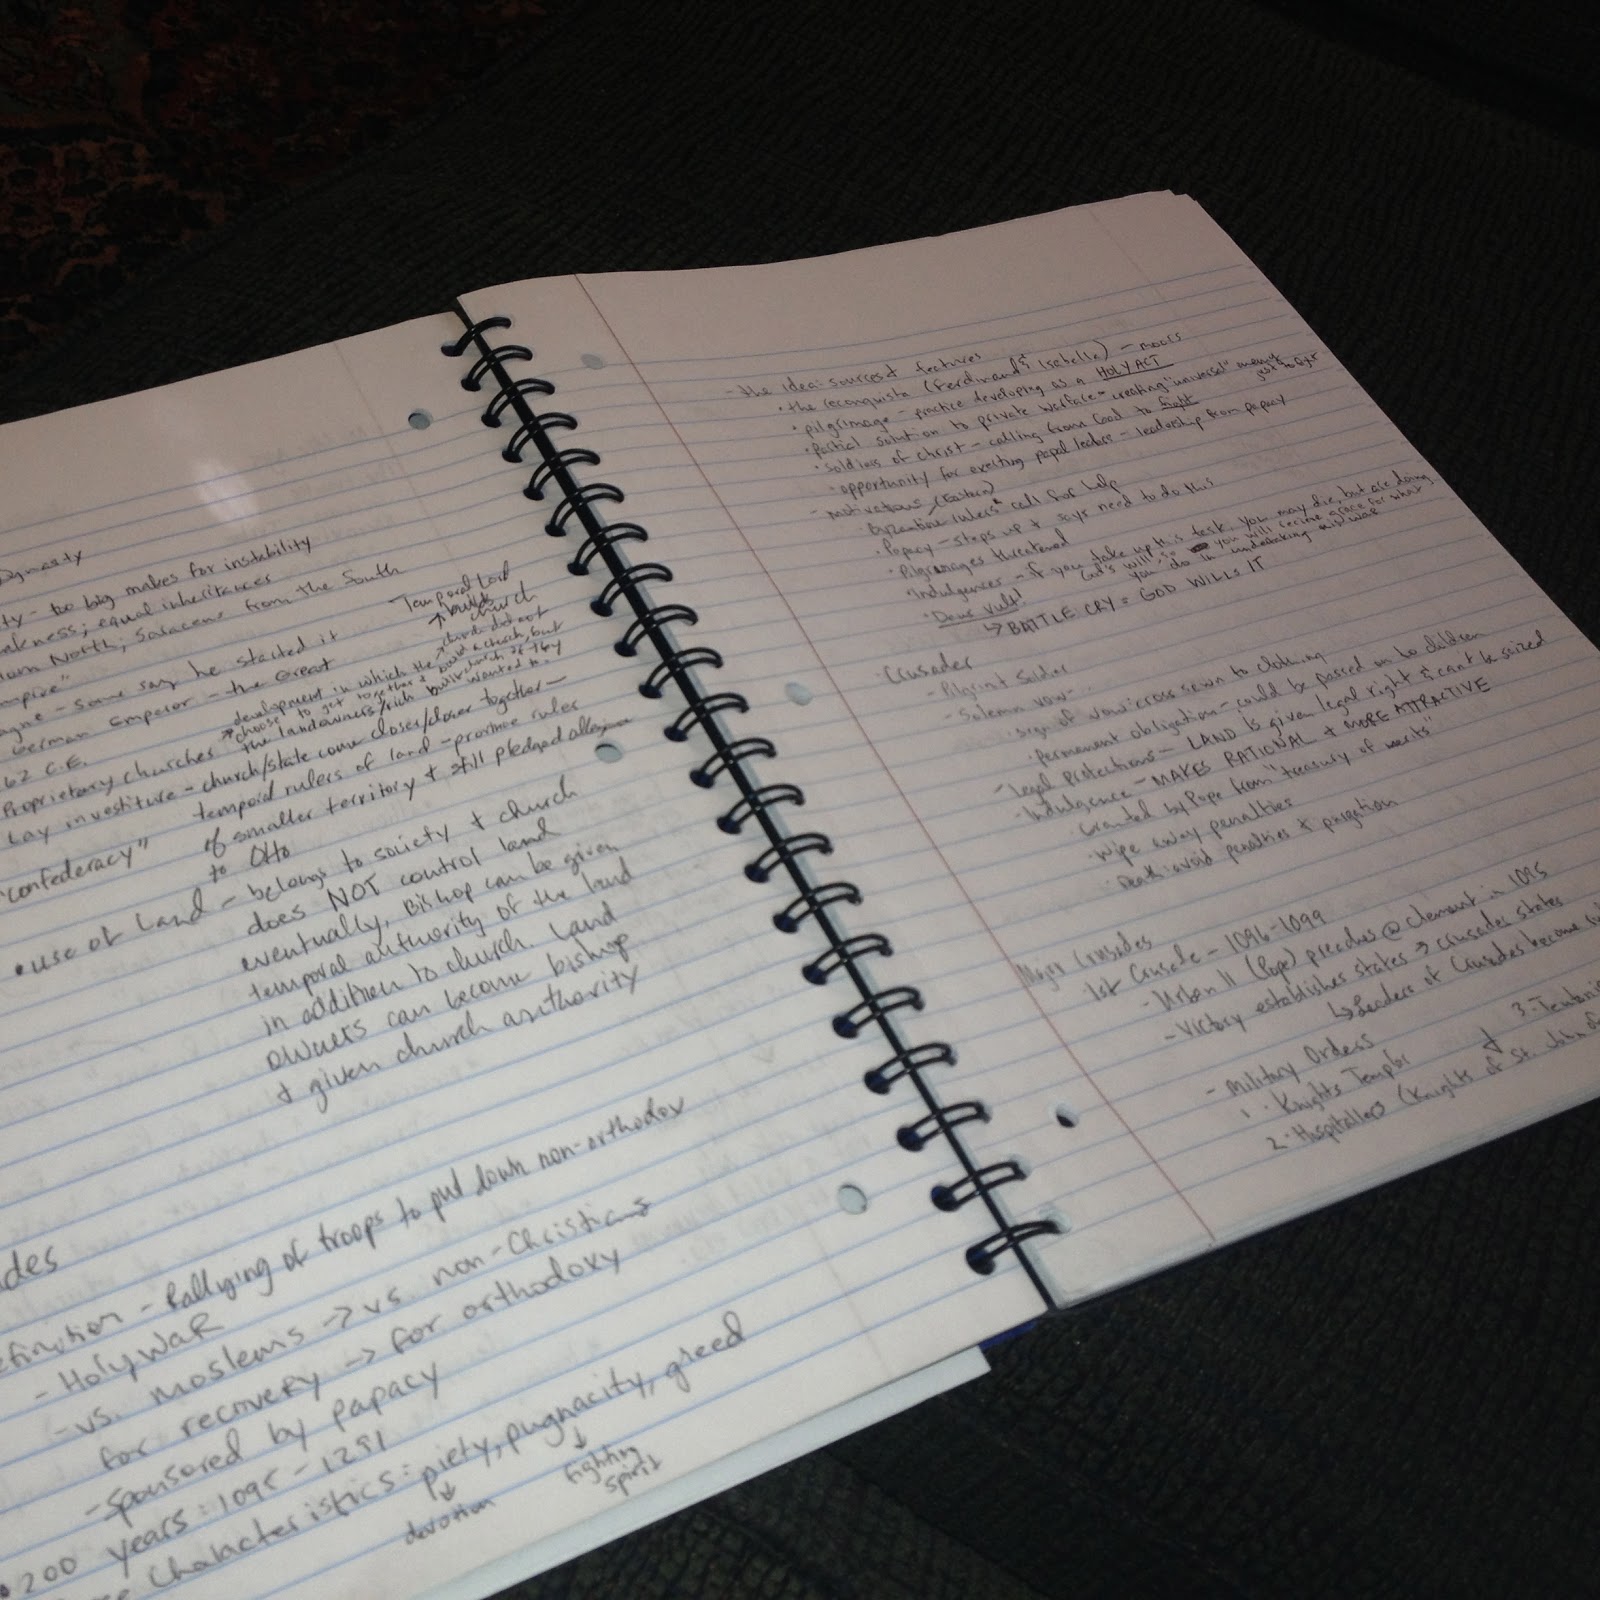 Dynasty
ty - too big makes for instability
akness; equal inheritances
from North; Saracens from the South
mpire"
agne - some say he started it
German Emperor - the Great
62 C.E.
Proprietary churches → development in which the church did not
choose to get together & build a church, but
the landowners/rich built church if they wanted to.
Temporal Lord
↑ builds
church
Lay investiture - church/state come closer/closer together -
temporal rulers of land - province rules
"confederacy" of smaller territory & still pledged allegiance
to Otto
• use of Land - belongs to society & church
does NOT control land
eventually, Bishop can be given
temporal authority of the land
in addition to church. Land
owners can become bishop
& given church authority
ades
efinition - Rallying of troops to put down non-orthodox
- Holy WaR
- vs. moslems → vs. non-Christians
for recovery → for orthodoxy
- sponsored by papacy
• 200 years: 1095 - 1291
characteristics: piety, pugnacity, greed
↓ devotion
↓ fighting spirit
- the idea: sources & features
• the reconquista (Ferdinand & Isabella) - moors
• pilgrimage - practice developing as a HOLY ACT
• Partial solution to private warfare - creating "universal" enemy just to fight
• soldiers of christ - calling from God to fight
• opportunity for exerting papal leaders - leadership from papacy
- motivations (Eastern)
• Byzantine rulers call for help
• Papacy - steps up & says need to do this
• Pilgrimages threatened
• Indulgences - if you take up this task you may die, but are doing
God's will, so you will receive grace for what
you do in undertaking this war
• Deus Vult!
↳ BATTLE CRY = GOD WILLS IT
Crusader
- Pilgrim & Soldier
- Solemn vow-
• sign of vow: cross sewn to clothing
• Permanent obligation - could be passed on to children
- legal Protections - LAND is given legal right & can't be seized
- Indulgence - MAKES RATIONAL & MORE ATTRACTIVE
• Granted by Pope from "treasury of merits"
• wipe away penalties
• Death: avoid penalties & purgation
Major Crusades
1st Crusade - 1096-1099
- Urban II (Pope) preaches @ Clermont in 1095
- Victory establishes states → crusader states
↳ Leaders of Crusades become
- Military Orders
1. Knights Templar & 3. Teutonic
2. Hospitallers (Knights of St. John